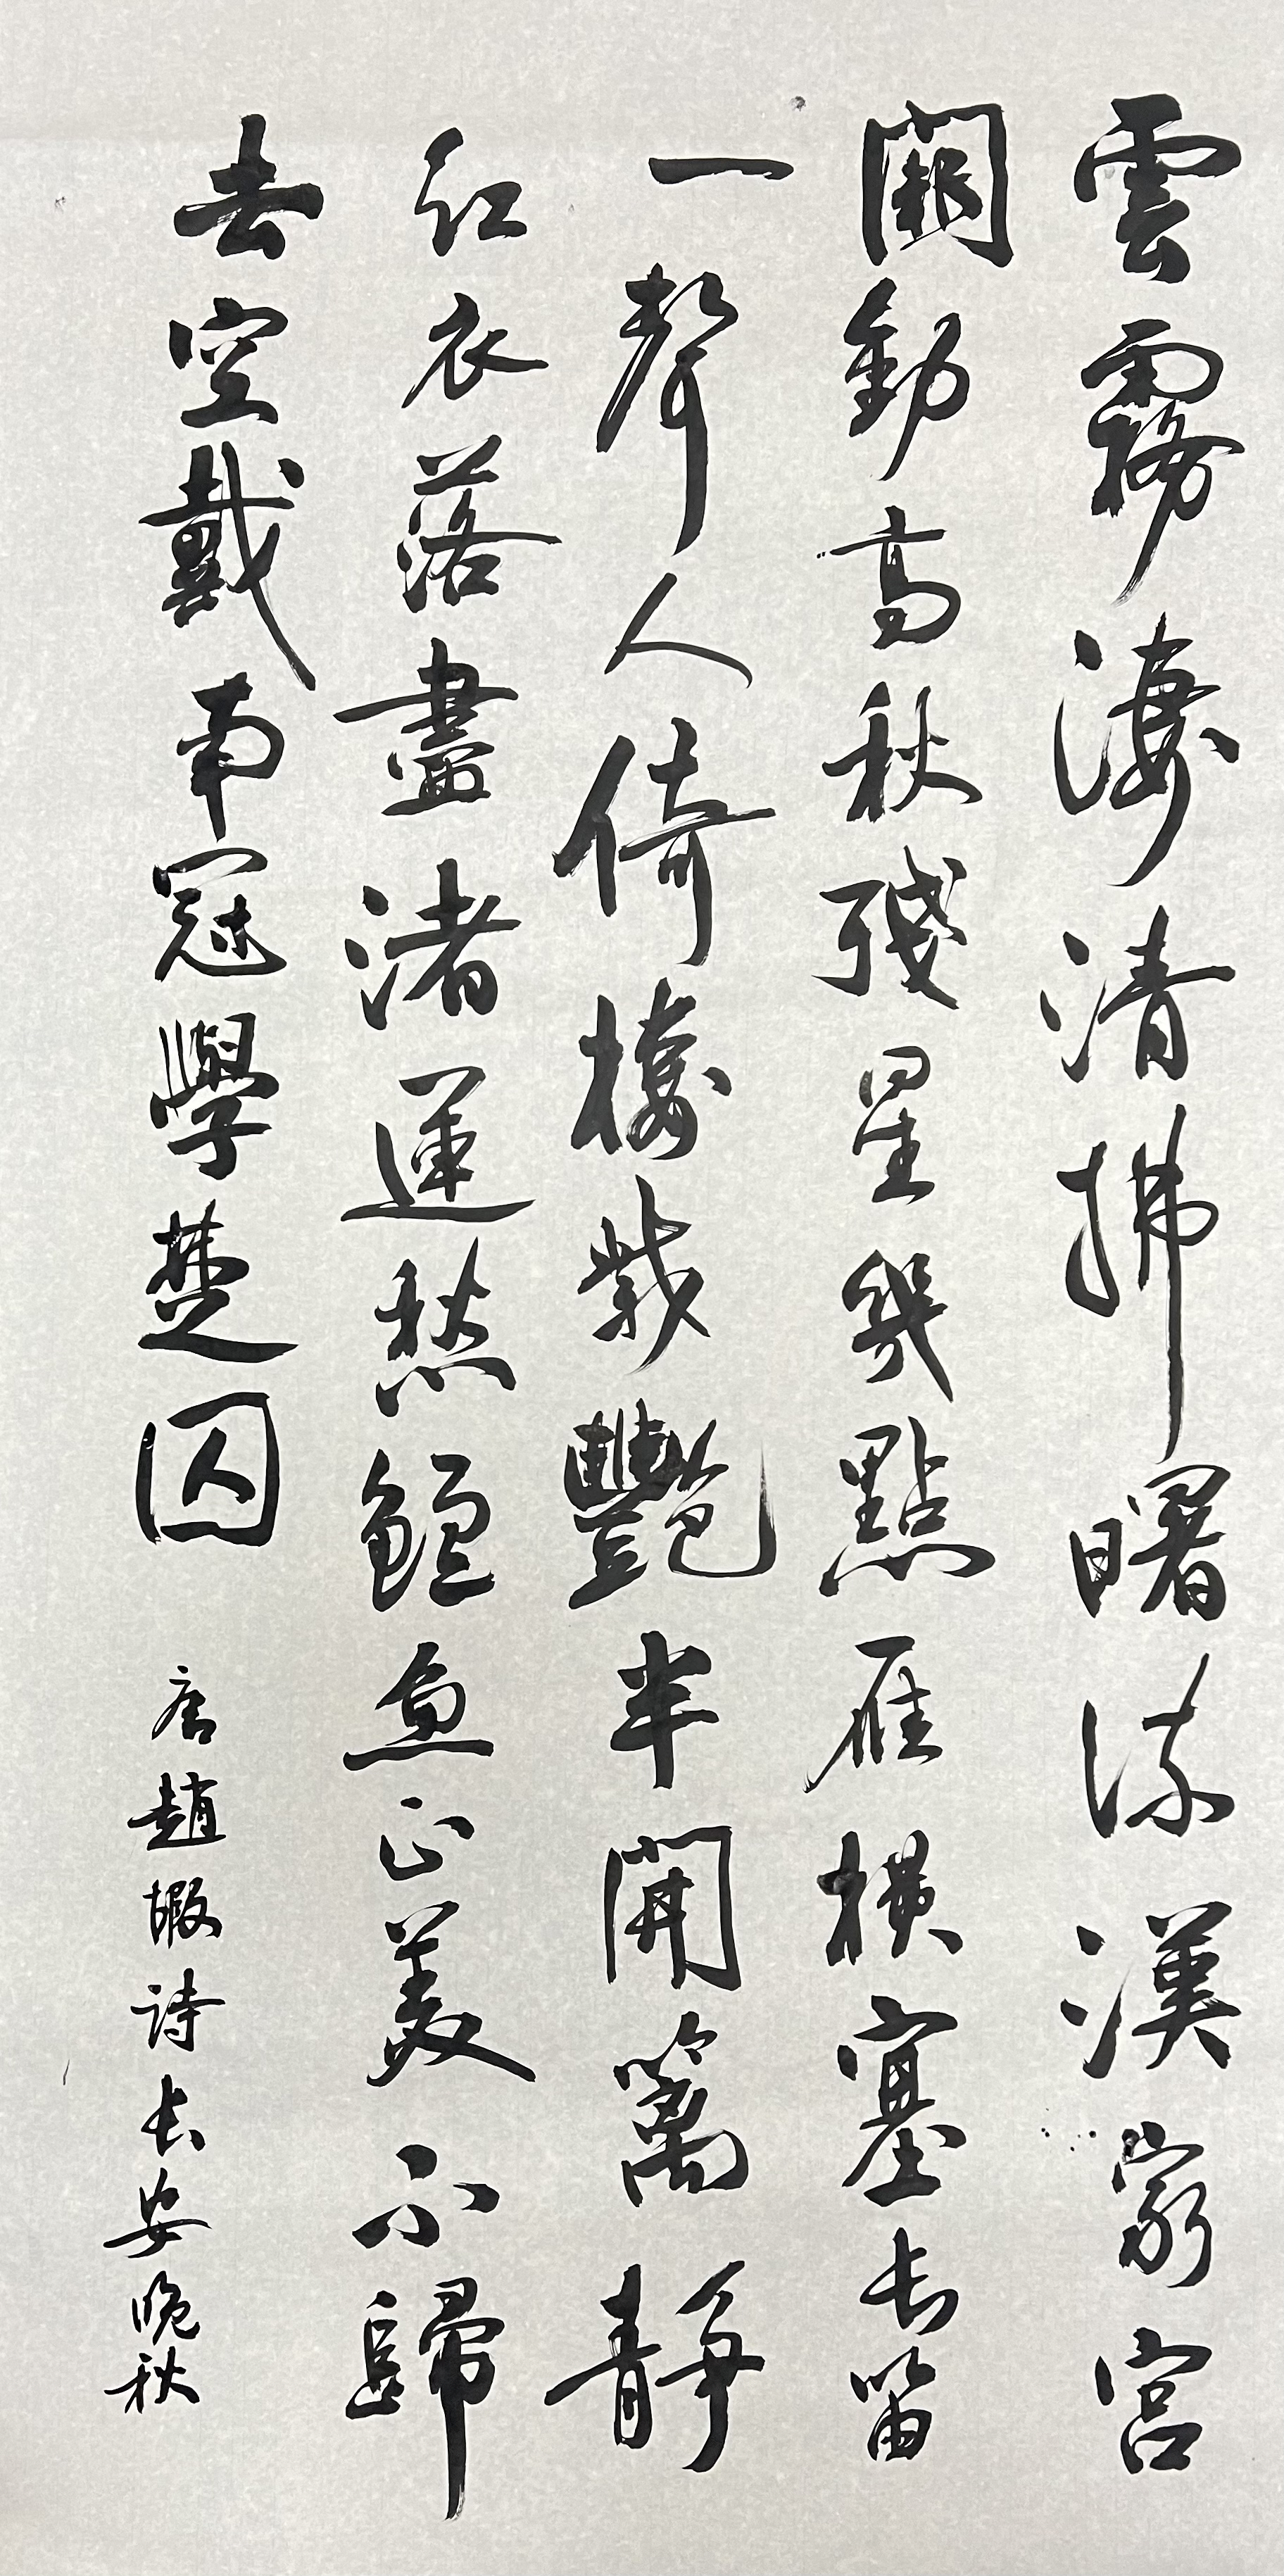 雲霧淒清拂曙流漢家宮
闕動高秋殘星幾點雁橫塞长笛
一聲人倚樓紫艷半開籬靜
紅衣落盡渚蓮愁鱸魚正美不歸
去空戴南冠學楚囚 唐趙嘏詩长安晚秋